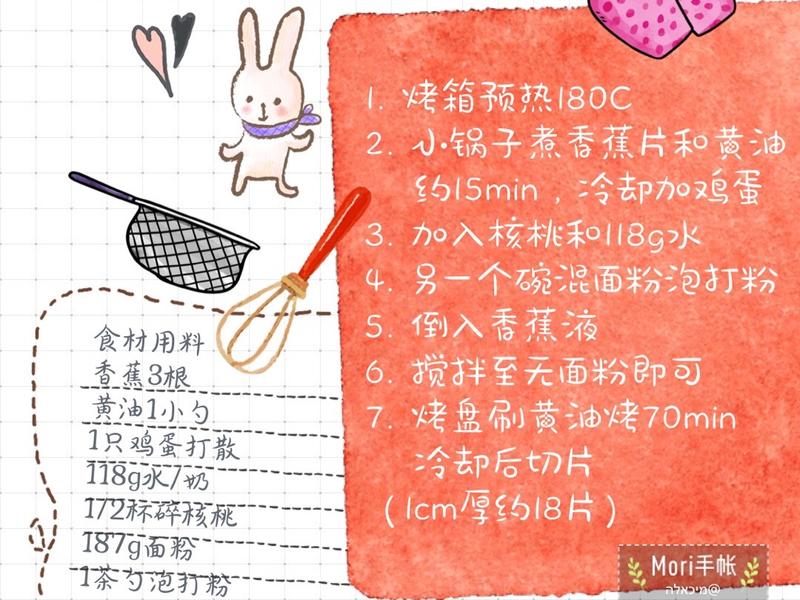 食材用料
香蕉3根
黄油1小勺
1只鸡蛋打散
118g水/奶
1/2杯碎核桃
187g面粉
1茶勺泡打粉
1. 烤箱预热180C
2. 小锅子煮香蕉片和黄油
约15min，冷却加鸡蛋
3. 加入核桃和118g水
4. 另一个碗混面粉泡打粉
5. 倒入香蕉液
6. 搅拌至无面粉即可
7. 烤盘刷黄油烤70min
冷却后切片
(1cm厚约18片)
Mori手帐
@מיכאלה